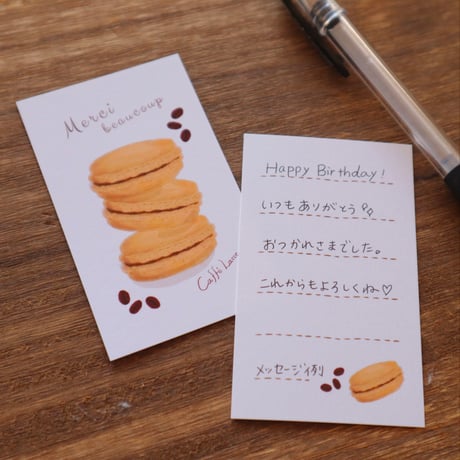 Merci
beaucoup
Caffè Latte
Happy Birthday!
いつもありがとう
おつかれさまでした。
これからもよろしくね♡
メッセージ例